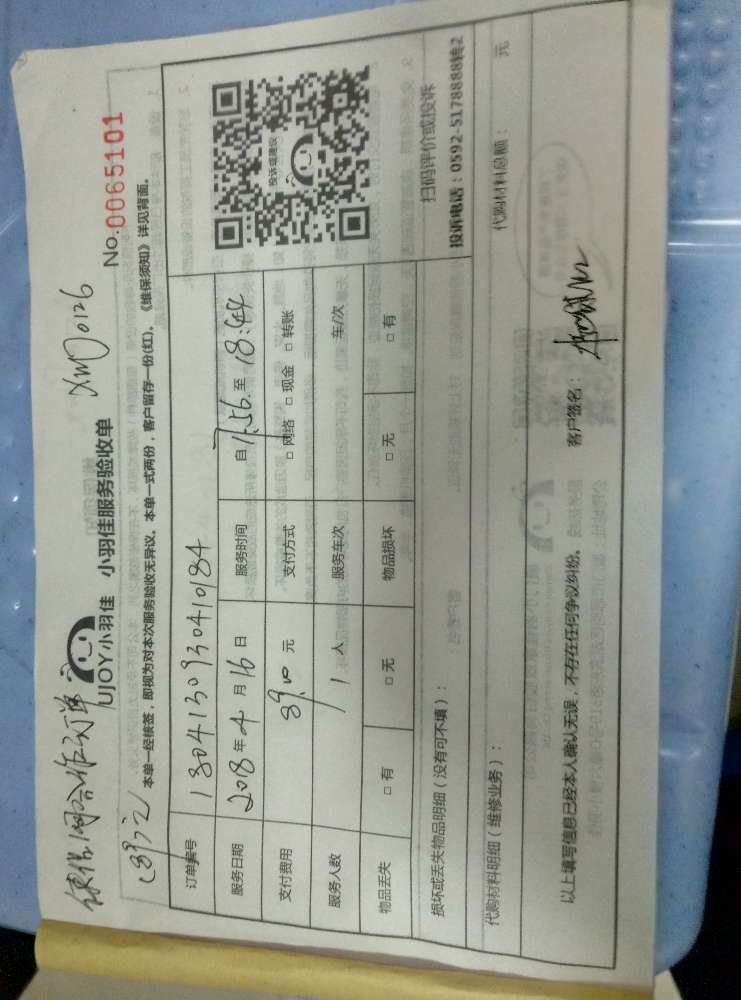 合作订单
XMD0126
UJOY小羽佳 小羽佳服务验收单
No.0065101
本单一经核签，即视为对本次服务验收无异议。本单一式两份，客户留存一份(红)。《维保须知》详见背面。
订单编号 1804130930410184
服务日期 2018年4月16日 服务时间 自17:56至18:44
支付费用 89.00元 支付方式 □网络 □现金 □转账
服务人数 1人 服务车次 车/次
物品丢失 □有 □无 物品损坏 □无 □有
投诉或建议
扫码评价或投诉
投诉电话：0592-5178888转2
损坏或丢失物品明细（没有可不填）：
代购材料明细（维修业务）： 代购材料总额： 元
以上填写信息已经本人确认无误，不存在任何争议纠纷。 客户签名：